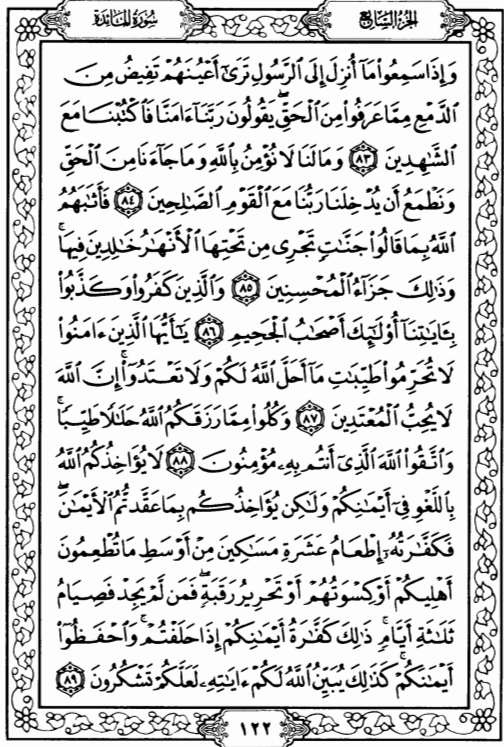 سُورَةُ المَائدَة الجُزءُ السَّابعُ
وَإِذَا سَمِعُوا۟ مَآ أُنزِلَ إِلَى ٱلرَّسُولِ تَرَىٰٓ أَعْيُنَهُمْ تَفِيضُ مِنَ
ٱلدَّمْعِ مِمَّا عَرَفُوا۟ مِنَ ٱلْحَقِّ ۖ يَقُولُونَ رَبَّنَآ ءَامَنَّا فَٱكْتُبْنَا مَعَ
ٱلشَّٰهِدِينَ ٨٣ وَمَا لَنَا لَا نُؤْمِنُ بِٱللَّهِ وَمَا جَآءَنَا مِنَ ٱلْحَقِّ
وَنَطْمَعُ أَن يُدْخِلَنَا رَبُّنَا مَعَ ٱلْقَوْمِ ٱلصَّٰلِحِينَ ٨٤ فَأَثَٰبَهُمُ
ٱللَّهُ بِمَا قَالُوا۟ جَنَّٰتٍ تَجْرِى مِن تَحْتِهَا ٱلْأَنْهَٰرُ خَٰلِدِينَ فِيهَا ۚ
وَذَٰلِكَ جَزَآءُ ٱلْمُحْسِنِينَ ٨٥ وَٱلَّذِينَ كَفَرُوا۟ وَكَذَّبُوا۟
بِـَٔايَٰتِنَآ أُو۟لَٰٓئِكَ أَصْحَٰبُ ٱلْجَحِيمِ ٨٦ يَٰٓأَيُّهَا ٱلَّذِينَ ءَامَنُوا۟
لَا تُحَرِّمُوا۟ طَيِّبَٰتِ مَآ أَحَلَّ ٱللَّهُ لَكُمْ وَلَا تَعْتَدُوٓا۟ ۚ إِنَّ ٱللَّهَ
لَا يُحِبُّ ٱلْمُعْتَدِينَ ٨٧ وَكُلُوا۟ مِمَّا رَزَقَكُمُ ٱللَّهُ حَلَٰلًا طَيِّبًا ۚ
وَٱتَّقُوا۟ ٱللَّهَ ٱلَّذِىٓ أَنتُم بِهِۦ مُؤْمِنُونَ ٨٨ لَا يُؤَاخِذُكُمُ ٱللَّهُ
بِٱللَّغْوِ فِىٓ أَيْمَٰنِكُمْ وَلَٰكِن يُؤَاخِذُكُم بِمَا عَقَّدتُّمُ ٱلْأَيْمَٰنَ ۖ
فَكَفَّٰرَتُهُۥٓ إِطْعَامُ عَشَرَةِ مَسَٰكِينَ مِنْ أَوْسَطِ مَا تُطْعِمُونَ
أَهْلِيكُمْ أَوْ كِسْوَتُهُمْ أَوْ تَحْرِيرُ رَقَبَةٍ ۖ فَمَن لَّمْ يَجِدْ فَصِيَامُ
ثَلَٰثَةِ أَيَّامٍ ۚ ذَٰلِكَ كَفَّٰرَةُ أَيْمَٰنِكُمْ إِذَا حَلَفْتُمْ ۚ وَٱحْفَظُوٓا۟
أَيْمَٰنَكُمْ ۚ كَذَٰلِكَ يُبَيِّنُ ٱللَّهُ لَكُمْ ءَايَٰتِهِۦ لَعَلَّكُمْ تَشْكُرُونَ ٨٩
١٢٢